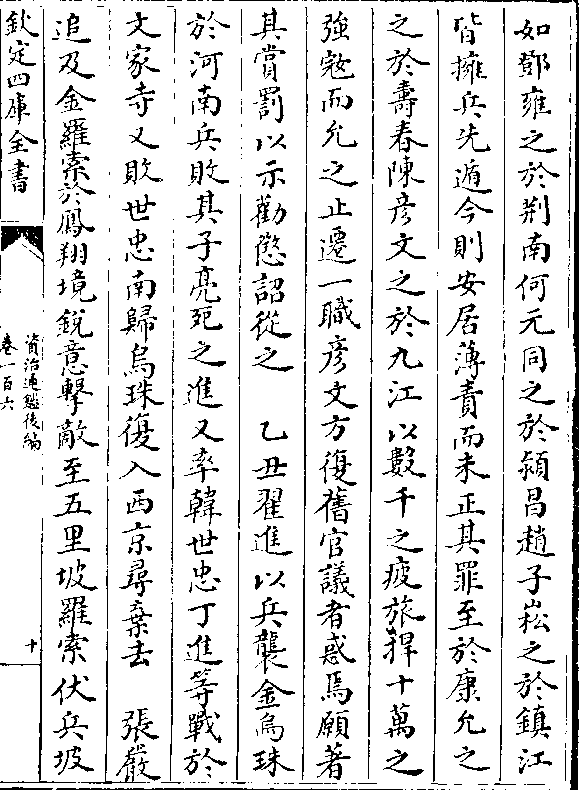 如鄧雍之於荆南何元同之於潁昌趙子崧之於鎮江
皆擁兵先遁今則安居薄責而未正其罪至於康允之
之於壽春陳彦文之於九江以數千之疲旅捍十萬之
強宼而允之止遷一職彦文方復舊官議者惑焉願著
其賞罰以示勸懲詔從之　乙丑翟進以兵襲金烏珠
於河南兵敗其子亮死之進又率韓世忠丁進等戰於
文家寺又敗世忠南歸烏珠復入西京尋棄去　張嚴
追及金羅索於鳳翔境鋭意擊敵至五里坡羅索伏兵坡
欽定四庫全書
資治通鑑後編
卷一百六
十